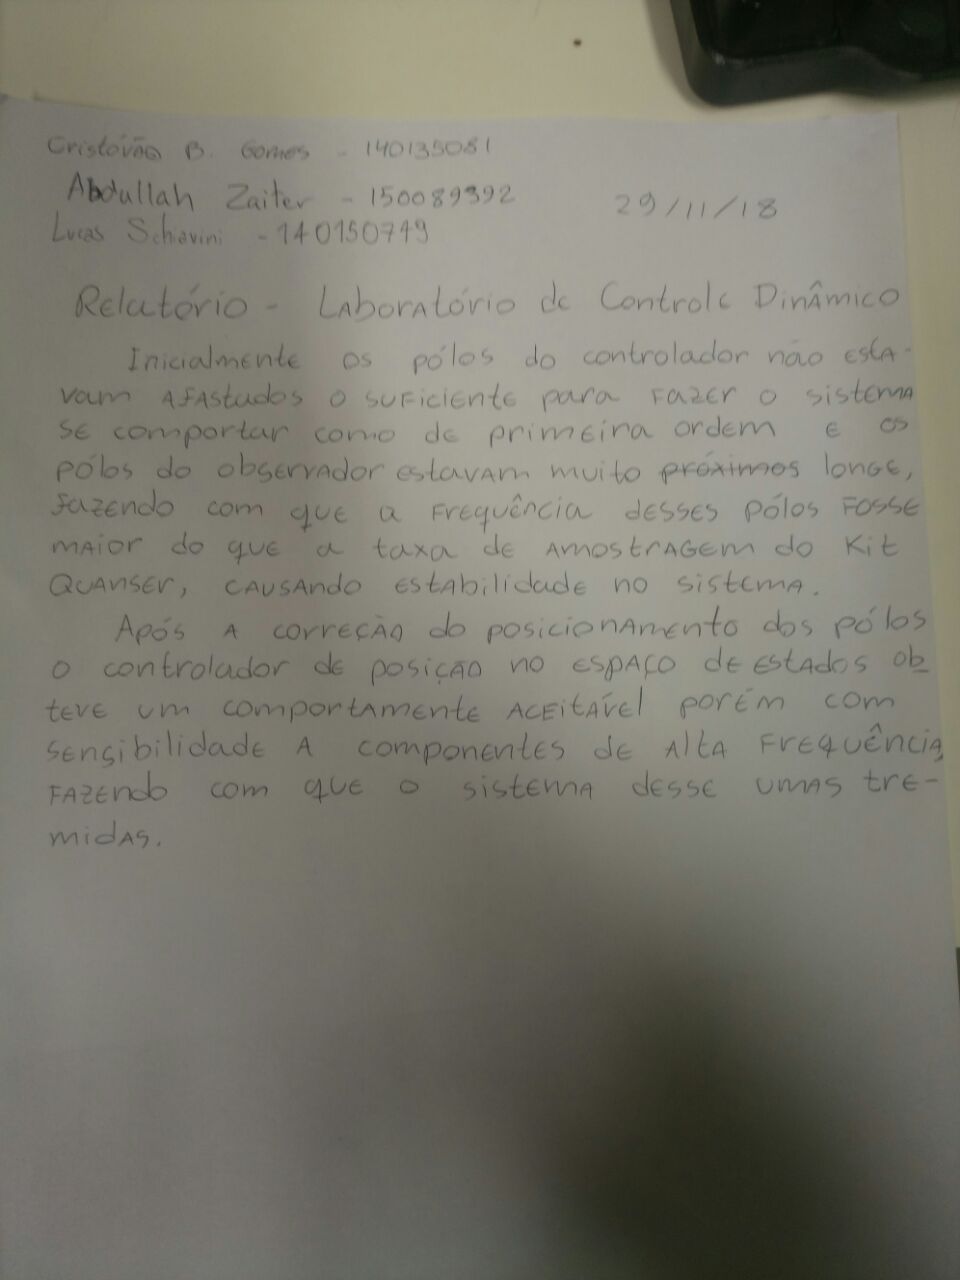 Cristóvão B. Gomes - 140135081
Abdullah Zaiter - 150089392
29/11/18
Lucas Schiavini - 140150749
Relatório - Laboratório de Controle Dinâmico
Inicialmente os pólos do controlador não esta-
vam afastados o suficiente para fazer o sistema
se comportar como de primeira ordem e os
pólos do observador estavam muito próximos longe,
fazendo com que a frequência desses pólos fosse
maior do que a taxa de amostragem do kit
Quanser, causando estabilidade no sistema.
Após a correção do posicionamento dos pólos
o controlador de posição no espaço de estados ob
teve um comportamente aceitável porém com
sensibilidade a componentes de alta frequência,
fazendo com que o sistema desse umas tre-
midas.